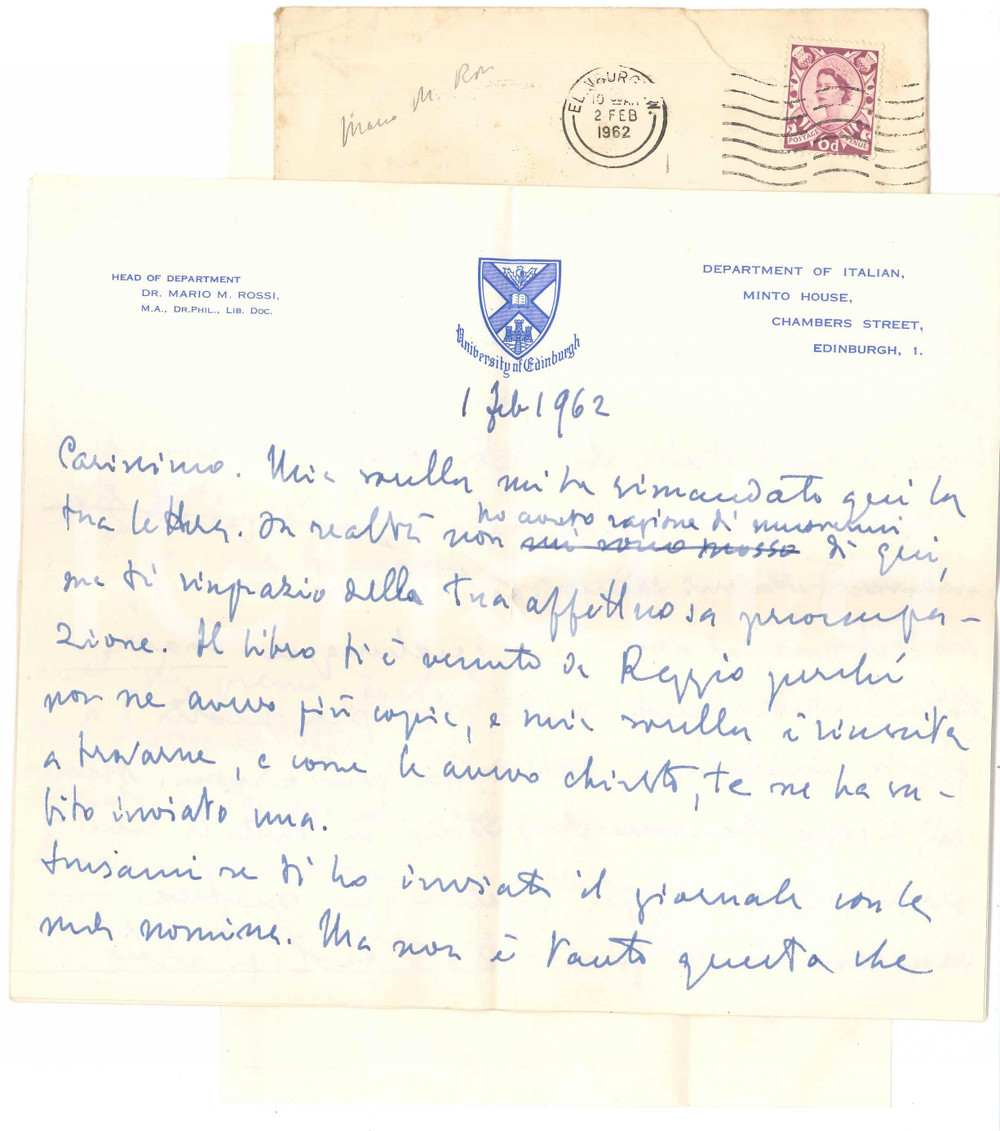 Mario M. Rossi
EDINBURGH
2 FEB
1962
POSTAGE REVENUE
6d
HEAD OF DEPARTMENT
DR. MARIO M. ROSSI.
M.A., DR.PHIL., LIB. DOC.
University of Edinburgh
DEPARTMENT OF ITALIAN,
MINTO HOUSE,
CHAMBERS STREET,
EDINBURGH, 1.
1 Feb 1962
Carissimo. Mia sorella mi ha rimandato qui la
tua lettera. In realtà non ho avuto ragione di muovermi
mi sono mosso di qui,
ma ti ringrazio della tua affettuosa preoccupa-
zione. Il libro ti è venuto da Reggio perché
non ne avevo più copie, e mia sorella è riuscita
a trovarne, e come le avevo chiesto, te ne ha su-
bito inviato una.
Scusami se ti ho inviato il giornale con la
mia nomina. Ma non è tanto questa che